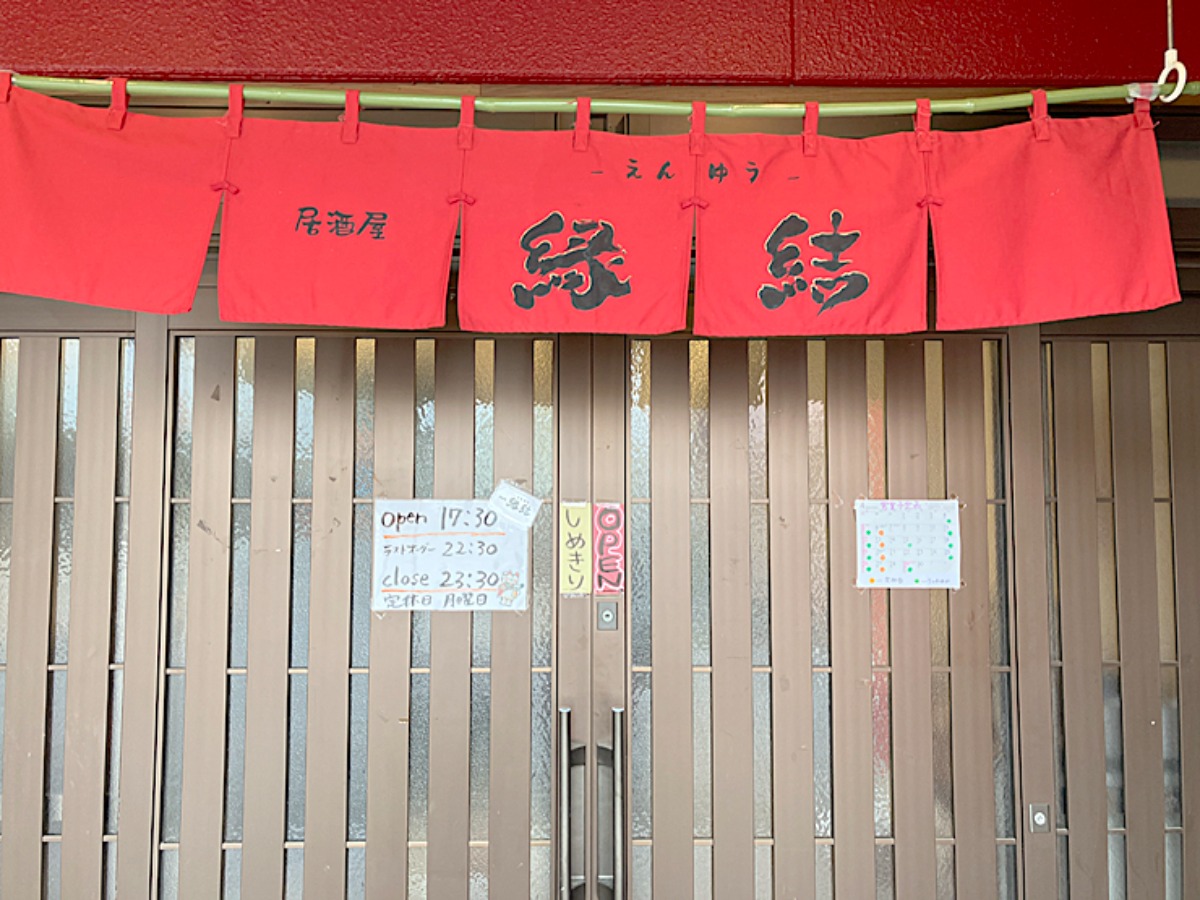 -えんゆう-
居酒屋
縁結
Open 17:30
ラストオーダー 22:30
close 23:30
定休日 月曜日
しめきり
OPEN